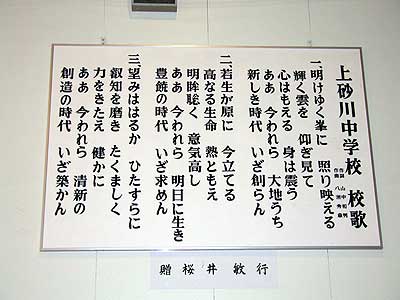 上砂川中学校 校歌
一、明けゆく峯に 照り映える
輝く雲を 仰ぎ見て
心はもえる 身は震う
ああ 今われら 大地うち
新しき時代 いざ創らん
二、若生が原に 今立てる
高なる生命 熟ともえ
明眸聡く 意気高し
ああ 今われら 明日に生き
豊饒の時代 いざ求めん
三、望みははるか ひたすらに
叡知を磨き たくましく
力をきたえ 健かに
ああ 今われら 清新の
創造の時代 いざ築かん
贈 桜井敏行